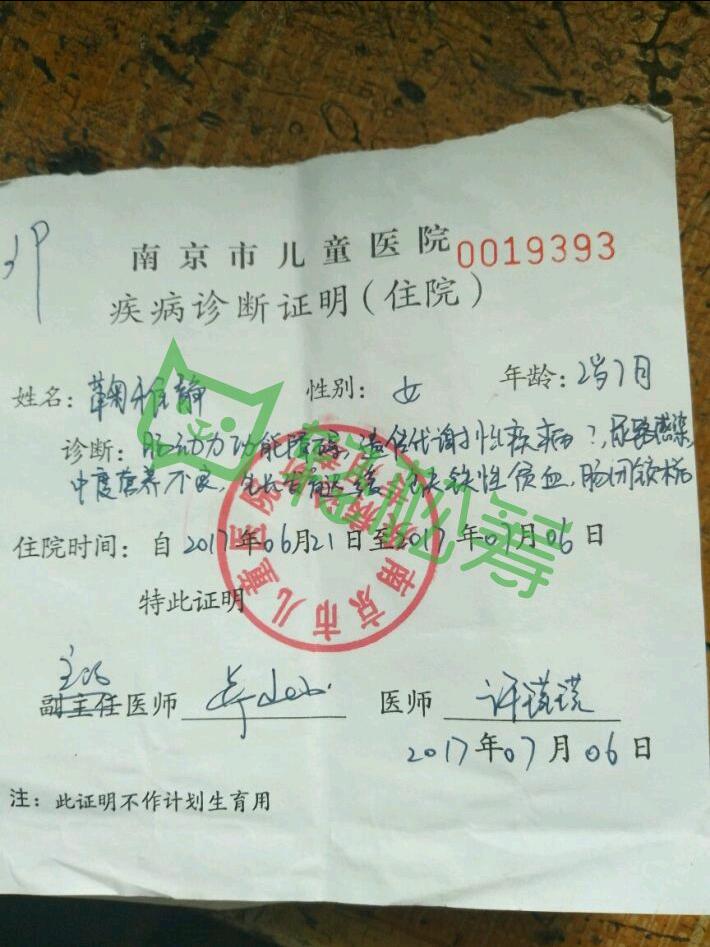 南京市儿童医院 0019393
疾病诊断证明(住院)
姓名:鞠雅静 性别:女 年龄:2岁7月
诊断:肠动力功能障碍,遗传代谢性疾病?,尿路感染,
中度营养不良,生长发育迟缓,缺铁性贫血,肠闭锁术
住院时间:自2017年06月21日至2017年07月06日
特此证明
主治
副主任医师 医师 许瑛瑛
2017年07月06日
注:此证明不作计划生育用
南京市儿童医院
轻松筹